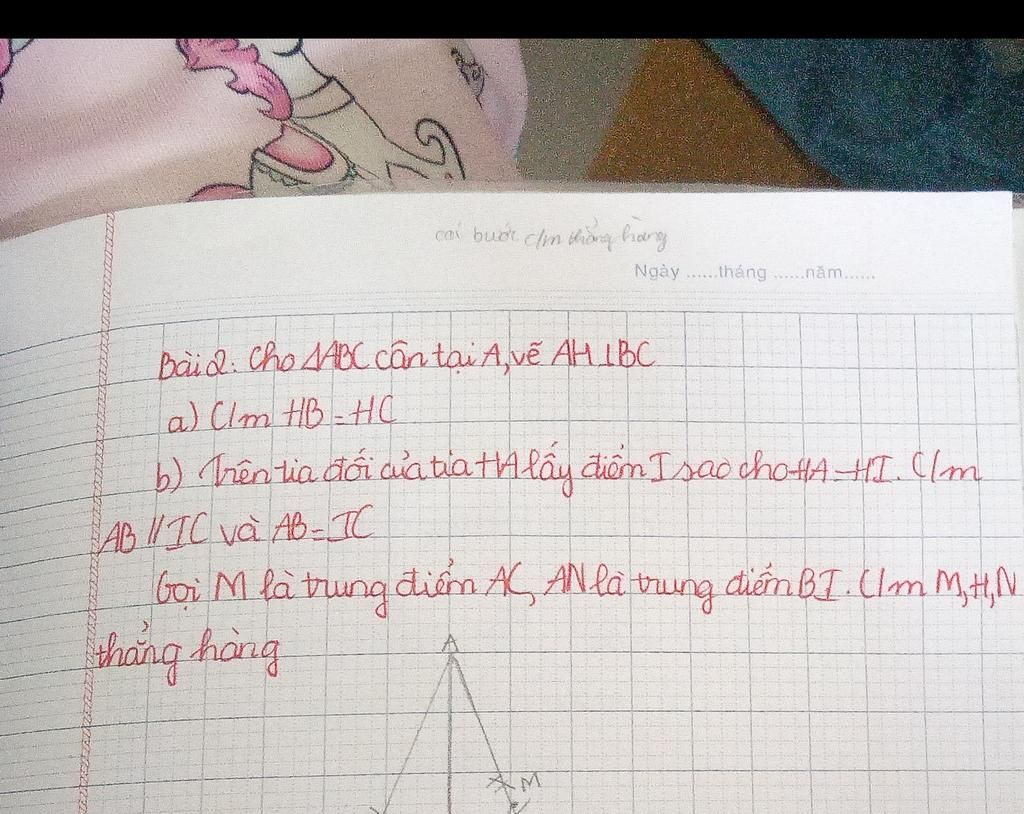 các bước c/m thẳng hàng
Ngày ......tháng ......năm......
Bài 2: Cho ΔABC cân tại A, vẽ AH⊥BC
a) C/m HB = HC
b) Trên tia đối của tia HA lấy điểm I sao cho HA = HI. C/m
AB // IC và AB = IC
Gọi M là trung điểm AC, AN là trung điểm BI. C/m M,H,N
thẳng hàng
A
M